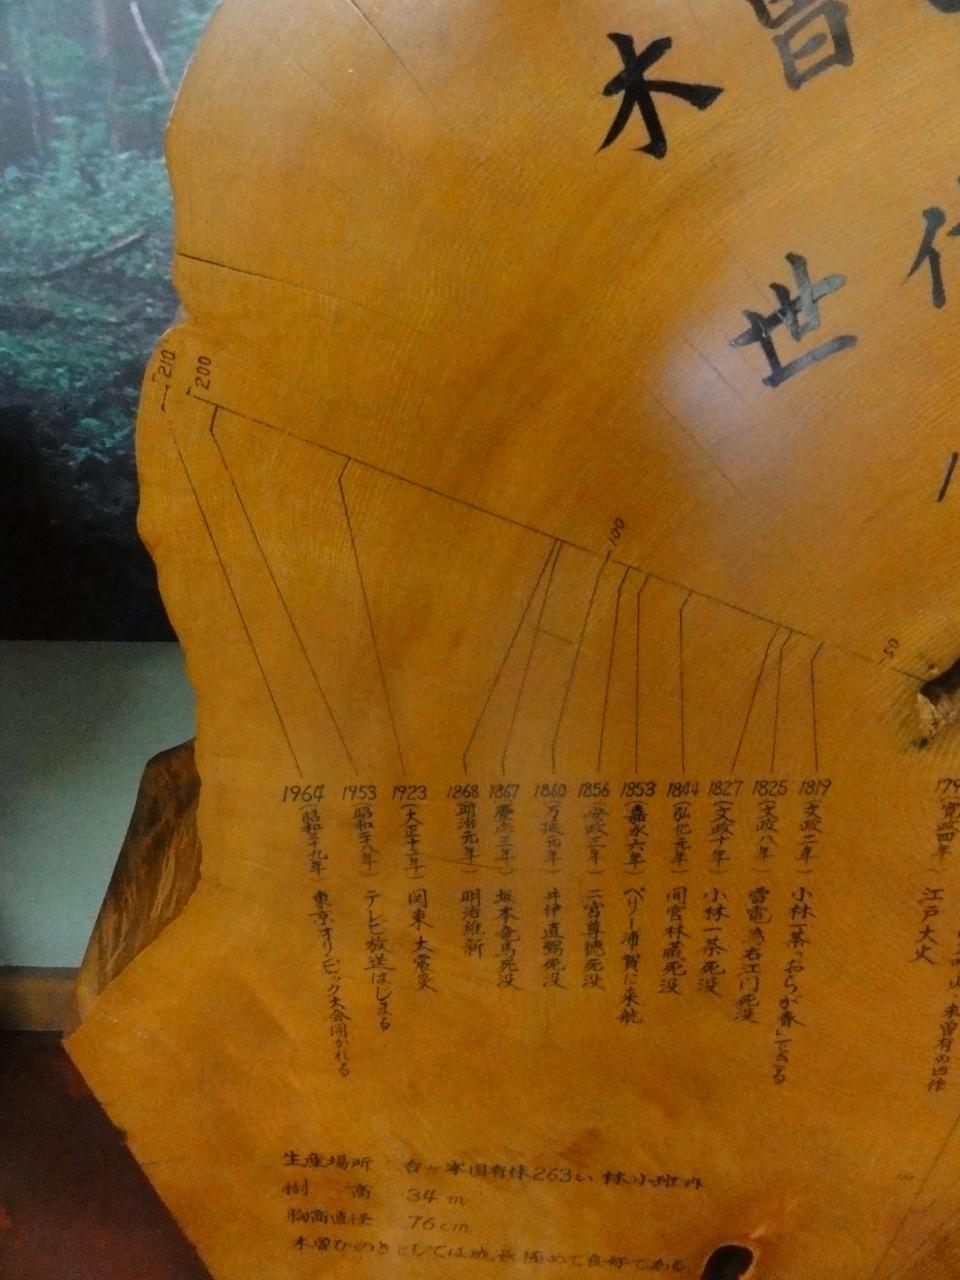 木曽
世
210
200
100
50
1964(昭和三十九年) 東京オリンピック大会開かれる
1953(昭和二十八年) テレビ放送はじまる
1923(大正十二年) 関東大震災
1868(明治元年) 明治維新
1867(慶応三年) 坂本竜馬死没
1860(万延元年) 井伊直弼死没
1856(安政三年) 二宮尊徳死没
1853(嘉永六年) ペリー浦賀に来航
1844(弘化元年) 間宮林蔵死没
1827(文政十年) 小林一茶死没
1825(文政八年) 雷電為右エ門死没
1819(文政二年) 小林一茶「おらが春」できる
179
(寛政四年) 江戸大火
未曽有の凶作
生産場所 台ヶ峯国有林263い林小班内
樹高 34m
胸高直径 76cm
木曽ひのきとしては成長極めて良好である